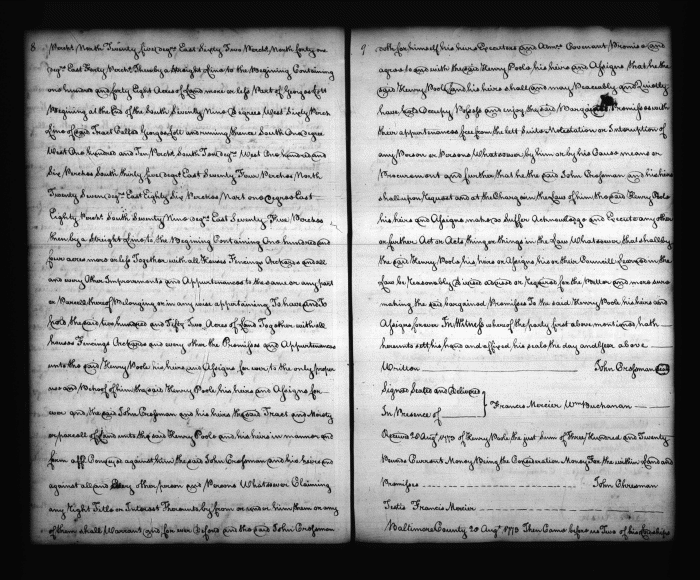 8
Perchs North Twenty five degrs East Sixty Two Perchs North forty one
degrs East Forty Perchs Thenby a Straight Line to the Begining Containing
one hundred and forty Eight Acres of Land more or less Part of Georges Lott
Begining at the End of the South Seventy Nine Degrees West Sixty Perch
Line of said Tract Called Georges Lott and runing thence South One degree
West One hundred and Ten Perchs South Two degrs West One hundred and
Six Perches South thirty five degrees East Seventy Four Perches North
Twenty Seven degrs East Eighty Six Perches Nort one Degree East
Eighty Perchs South Seventy Nine degrs East Seventy Five Perches
then by a Straight Line to the Begining Containing One hundred and
four acres more or less Together with all Houses Fincings Orchards and all
and every Other Improvements and Appurtenances to the same or any part
or Parcell thereof Belonging or in any wise appertaining To have and To
hold the said two hundred and Fifty Two Acres of Land Together with all
houses Fincings Orchards and every other the Premisses and Appurtenances
unto the said Henry Poole his heirs and Assigns for ever to the only proper
use and Behoof of him the said Henry Poole his heirs and Assigns for
ever and the said John Crossman and his heirs the said Tract and Moiety
or parcell of Land unto the said Henry Poole and his heirs in manner and
form aff against him the said John Crossman and his heirs and
against all and Every other person and Persons Whatsoever Claiming
any Right Title or Interest Thereunto by from or under him them or any
of them shall Warrant and for ever Defend and the said John Crossman
9
doth for himself his heirs Executors and Admrs Covenant Promise and
agree to and with the said Henry Pool his heirs and Assigns that he the
said Henry Pool and his heirs shall and may Peaceably and Quietly
have hold Occupy Posess and enjoy the said Bargained Premisses with
their appurtenances free from the lett Suite Molestation or Interuption of
any Person or Persons Whatsoever by him or by his Cause means or
Procurement and further that he the said John Crossman and his heirs
shall upon request and at the Charge in the Law of him the said Henry Poole
his heirs and Assigns make do Suffer Acknowledge and Execute any other
or further Act or Acts thing or things in the Law Whatsoever that shall by
the said Henry Poole his heirs or Assigns his or their Councill Learned in the
Law be Reasonably Divised advised or required for the better and more sure
making the said bargained Premisses To the said Henry Poole his heirs and
Assigns forever In Witness whereof the party first above mentioned hath
hereunto sett his hand and affixed his seale the day and year above
Written John Crossman Seal
Signed Sealed and Delivered
In Presence of
Francis Mercier Wm Buchanan
Received 20 Augt 1773 of Henry Poole the just Sum of three Hundred and Twenty
Pounds Currant Money being the Consideration Money For the within Land and
Premisses John Chresman
Testis Francis Mercier
Baltimore County 20 Augt 1773 Then Came before us Two of his Lordships